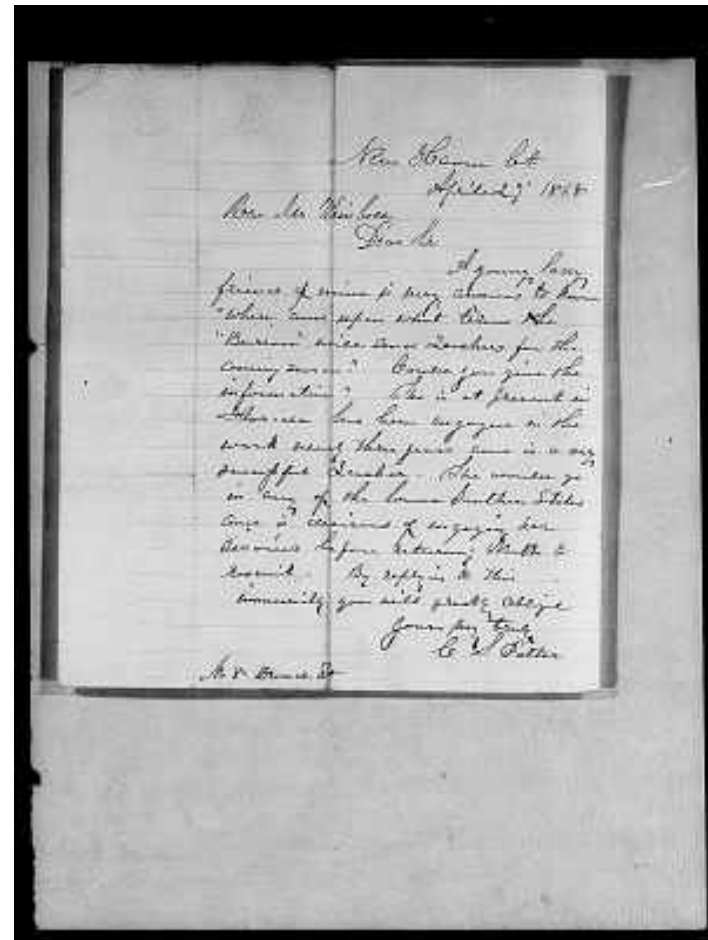 New Haven Ct
April 27 1868
Rev Mr
Dear Sir
A young lady
friend of mine is very anxious to know
"when and upon what terms the
"Bureau" will send Teachers for the
coming season? Could you give the
information? She is at present in
has been engaged in the
work nearly three years and is a very
successful Teacher. She would go
in any of the Southern States
and is desirous of engaging her
services before returning North to
recruit. By replying to this
you will greatly oblige
Yours very truly
C